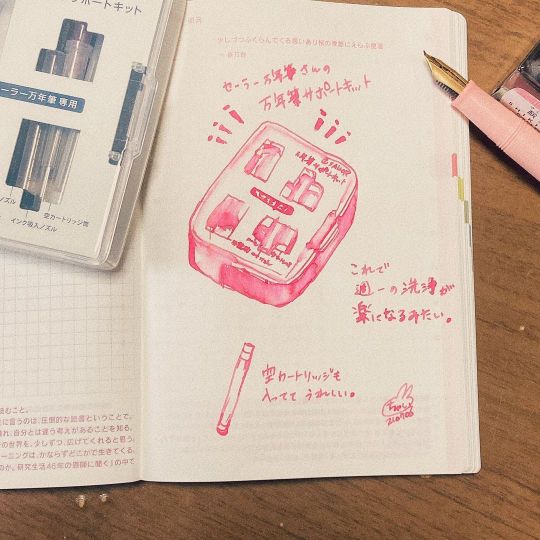 ポートキット
ーラー万年筆 専用
ノズル
空カートリッジ(筒)
インク吸入ノズル
少しづつふくらんでくる思いあり秋の季節にえらぶ
セーラー万年筆さんの
万年筆サポートキット
これで
週一の洗浄が
楽になるみたい。
空カートリッジも
入ってて うれしい。
210706
組むこと。
に言うのは、圧倒的な読書ということで、
離れ、自分とは違う考えがあることを知る。
の世界を、少しずつ、広げてくれると思う。
ーニングは、かならずどこかで生きてくる。
のか。研究生活46年の恩師に聞く」の中で